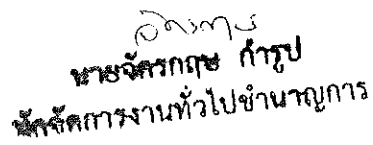 นายจักรกฤษ กำรูป
นักจัดการงานทั่วไปชำนาญการ